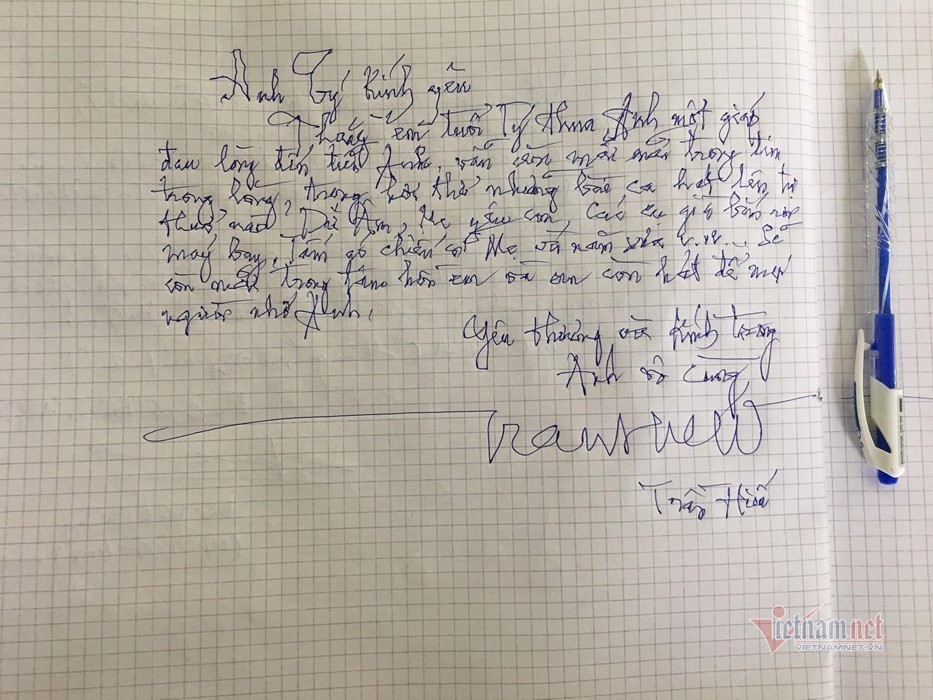 Anh Tý kính yêu
Thằng em tuổi Tý thua Anh một giáp
đau lòng đến tiễn Anh. Vẫn còn mãi mãi trong tim
trong lòng, trong hơi thở những bài ca hát lên tự
thuở nào, Dư Âm, Mẹ yêu con, Các cụ già bắn rơi
máy bay, Tấm áo chiến sĩ Mẹ vá năm xưa v.v... Sẽ
còn mãi trong tâm hồn em và em còn hát để mọi
người nhớ Anh.
Yêu thương và kính trọng
Anh vô cùng
Tranhieu
Trần Hiếu
Vietnamnet
VIETNAMNET.VN